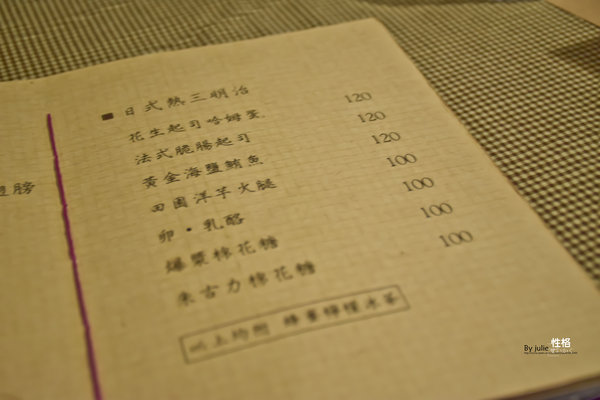 翅膀
■日式熱三明治
花生起司哈姆蛋 120
法式脆腸起司 120
黃金海鹽鮪魚 120
田園洋芋火腿 100
卵·乳酪 100
爆漿棉花糖 100
朱古力棉花糖 100
以上均附 蜂蜜檸檬冰茶
By julie 性格